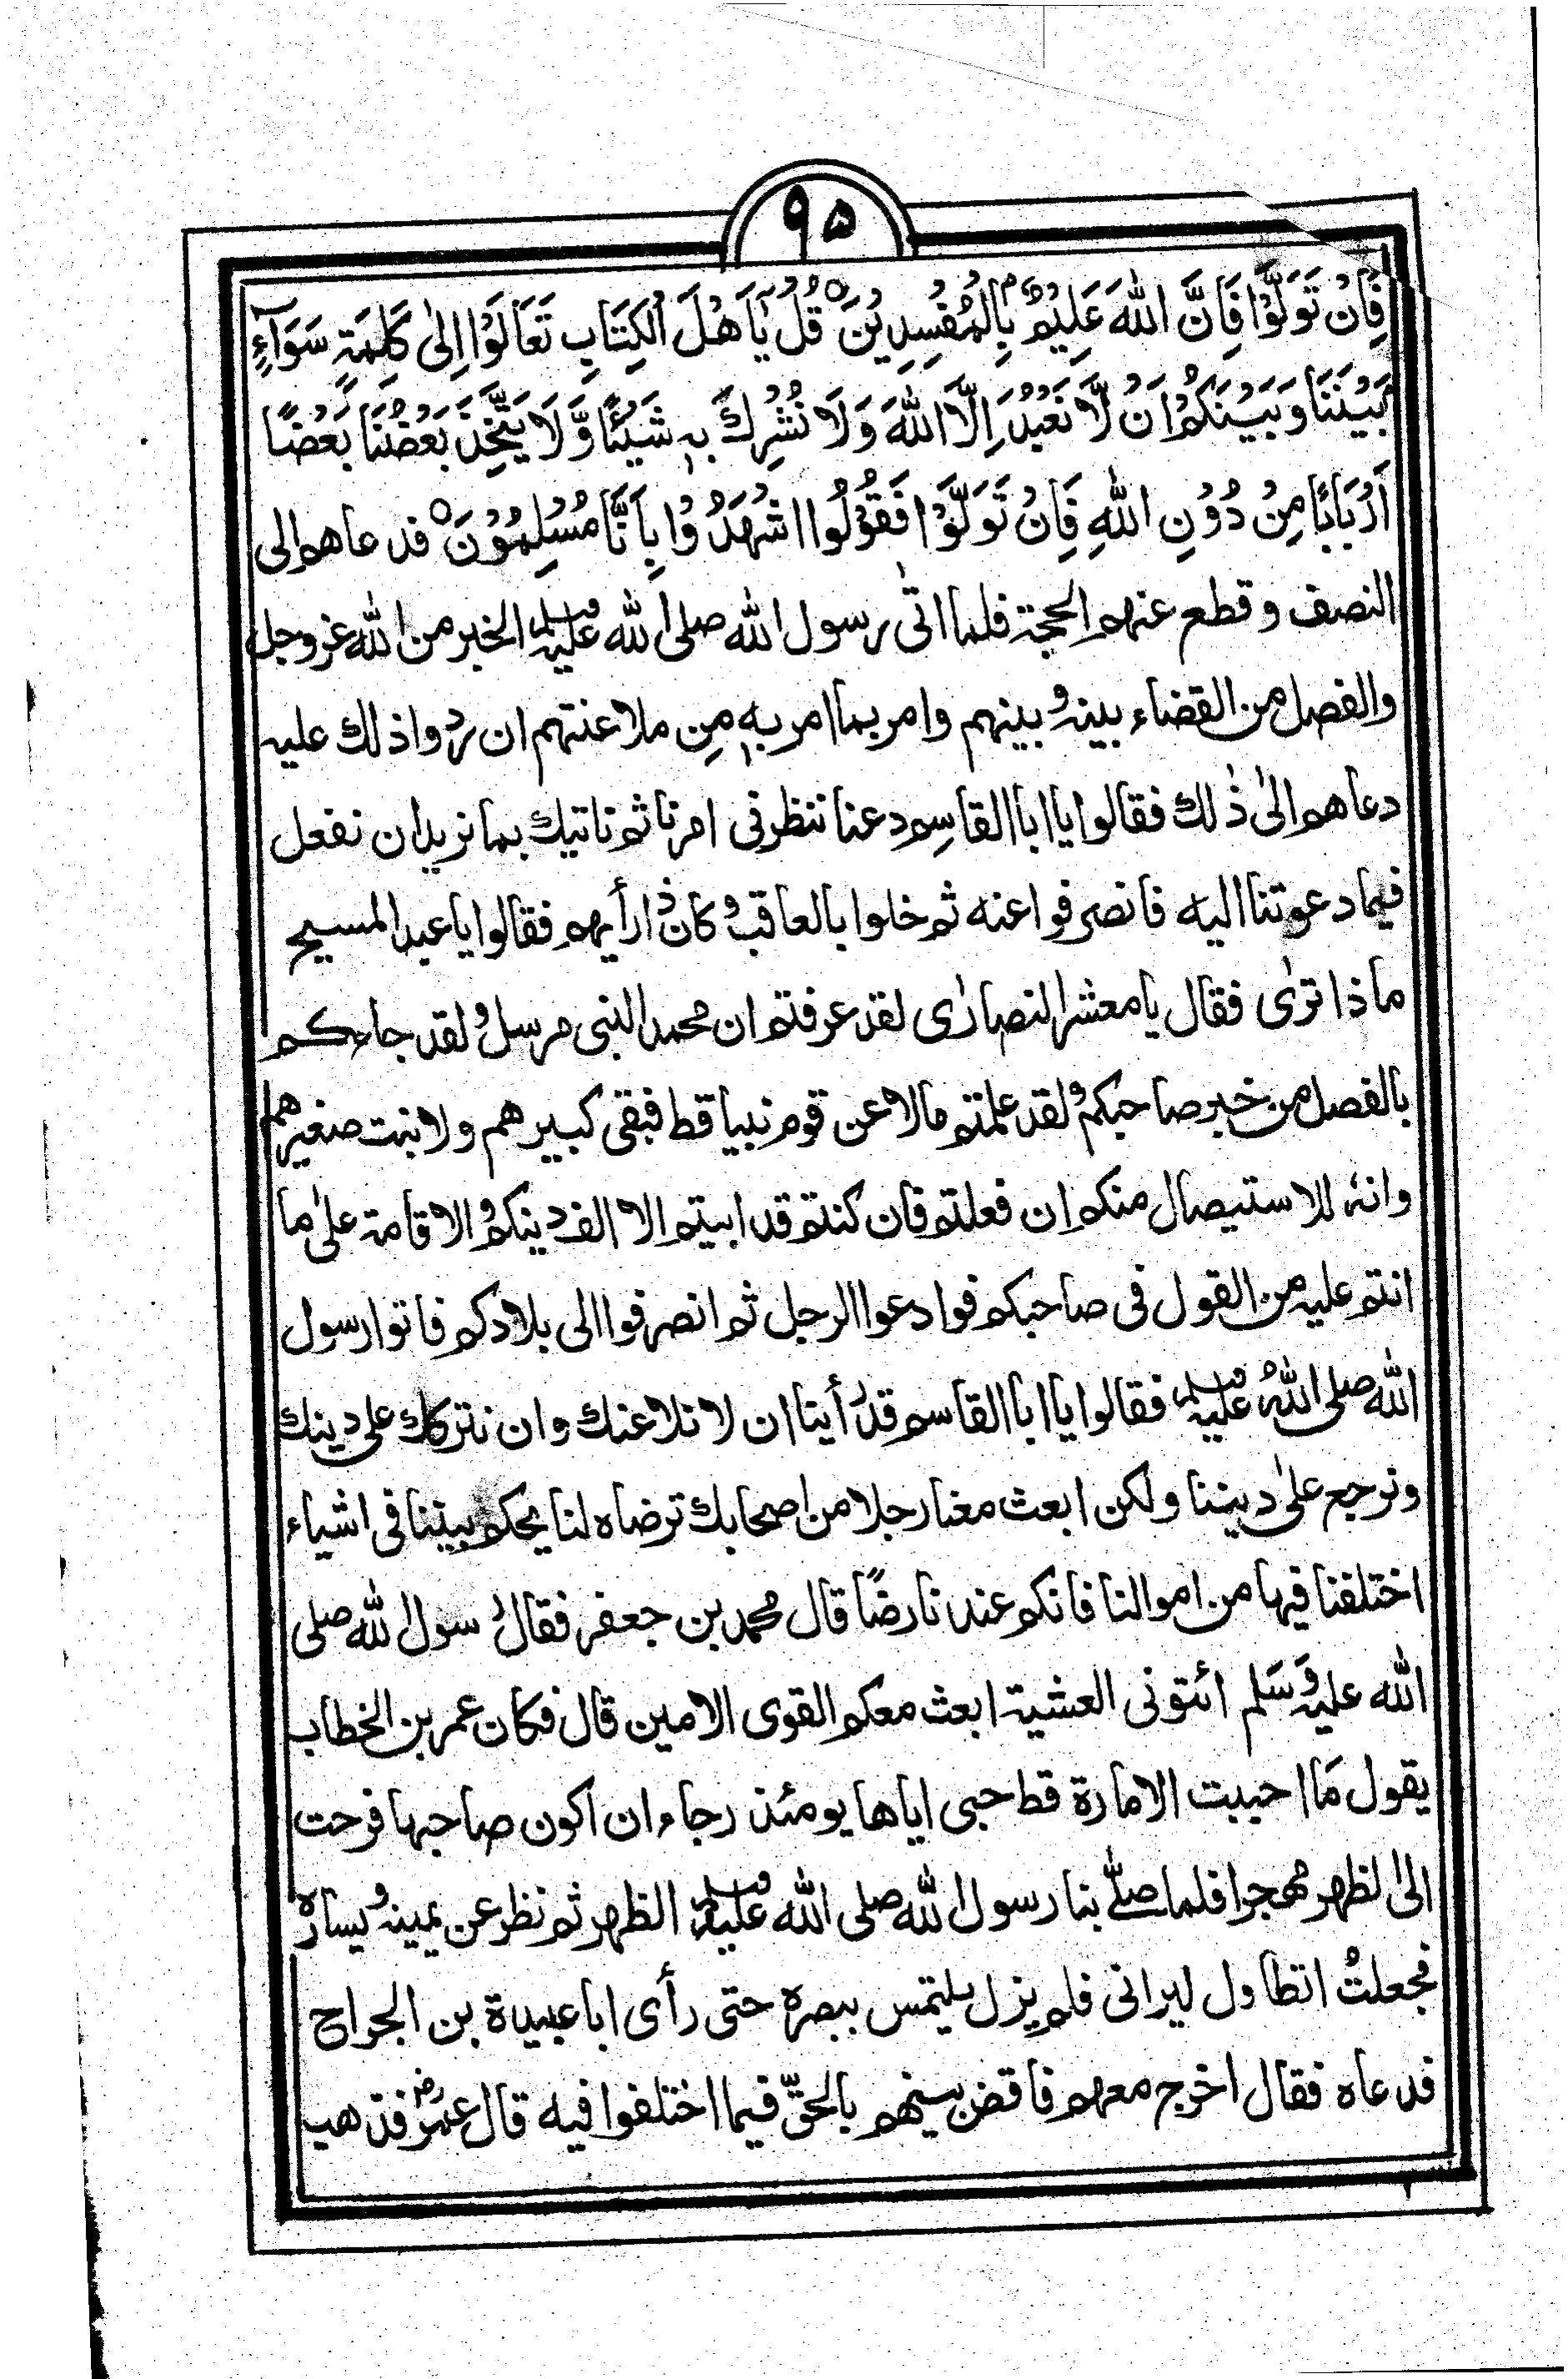 ٩۵
فَاِنْ تَوَلَّوْا فَاِنَّ اللهَ عَلِيْمٌۢ بِالْمُفْسِدِيْنَ○ قُلْ يٰۤاَهْلَ الْكِتَابِ تَعَالَوْا اِلٰى كَلِمَةٍ سَوَآءٍۭ
بَيْنَنَا وَبَيْنَكُمْ اَنْ لَّا نَعْبُدَ اِلَّا اللهَ وَلَا نُشْرِكَ بِهٖ شَيْئًا وَّلَا يَتَّخِذَ بَعْضُنَا بَعْضًا
اَرْبَابًا مِنْ دُوْنِ اللهِ فَاِنْ تَوَلَّوْا فَقُوْلُوا اشْهَدُوْا بِاَنَّا مُسْلِمُوْنَ○ فدعاهم الى
النصف وقطع عنهم الحجة فلما اتٰى رسول الله صلى الله عليه وسلم الخبر من الله عزوجل
والفصل من القضاء بينه وبينهم وامر بما امر بهٖ مِن ملاعنتهم ان ردوا ذلك عليه
دعاهم الىٰ ذٰلك فقالوا يا ابا القاسِم دعنا ننظر فى امرنا ثم ناتيك بما نريد ان نفعل
فيما دعوتنا اليه فانصرفوا عنه ثم خلوا بالعاقب وكان ذا رأيهم فقالوا يا عبد المسيح
ماذا ترٰى فقال يا معشر النصارٰى لقد عرفتم ان محمدا لنبى مرسل ولقد جاءكم
بالفصل من خبر صاحبكم ولقد علمتم ما لاعن قوم نبيا قط فبقى كبيرهم ولا نبت صغيرهم
وانهٗ للاستيصال منكم ان فعلتم فان كنتم قد ابيتم الا الف دينكم والاقامة علىٰ ما
انتم عليه من القول فى صاحبكم فوادعوا الرجل ثم انصرفوا الى بلادكم فاتوا رسول
الله صلى اللهُ عليه وسلم فقالوا يا ابا القاسم قد رأينا ان لا نلاعنك وان نتركك على دينك
ونرجع علىٰ ديننا ولكن ابعث معنا رجلا من اصحابك ترضاه لنا يحكم بيننا فى اشياء
اختلفنا فيها من اموالنا فانكم عندنا رضًا قال محمد بن جعفر فقال رسول الله صلى
الله عليه وَسَلم ائتونى العشية ابعث معكم القوى الامين قال فكان عمر بن الخطاب
يقول مَا احببت الامارة قط حبى اياها يومئذ رجاء ان اكون صاحبها فرحت
الى الظهر مهجرا فلما صلّٰے بنا رسول الله صلى الله عليه وسلم الظهر ثم نظر عن يمينه ويساره
فجعلتُ اتطاول ليرانى فلم يزل يلتمس ببصره حتى رأى ابا عبيدة بن الجراح
فدعاه فقال اخرج معهم فاقض بينهم بالحقّ فيما اختلفوا فيه قال عمرؓ فذهب